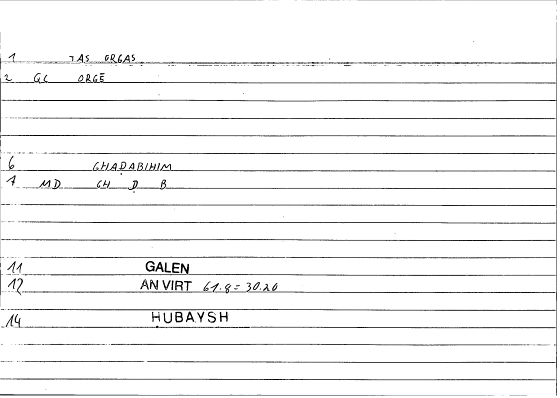 1 TAS ORGAS
2 GL ORGĒ
6 GHAḌABIHIM
7 MD GH Ḍ B
11 GALEN
12 AN VIRT 61.8 = 30.20
14 ḤUBAYSH